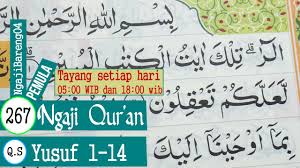 NgajiBareng04
PEMULA
بِسْمِ اللّٰهِ
الۤرٰ تِلْكَ اٰيٰتُ الْكِتٰبِ
Tayang setiap hari
05:00 WIB dan 18:00 wib
لَعَلَّكُمْ تَعْقِلُوْنَ
267 Ngaji Qur'an
Q.S Yusuf 1-14
بِمَآ اَوْحَيْنَآ اِلَيْكَ